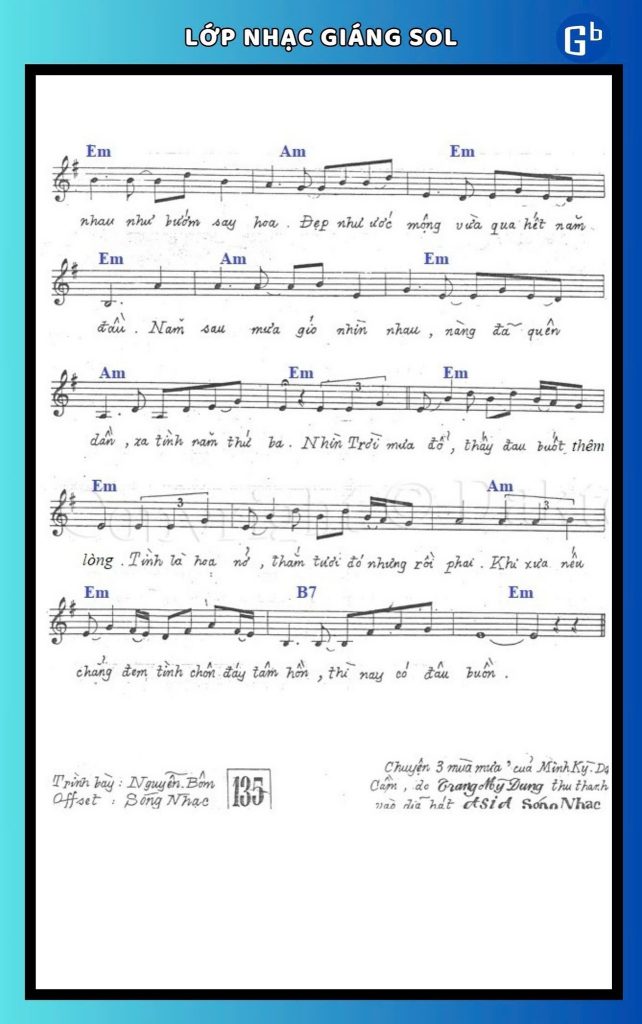 LỚP NHẠC GIÁNG SOL
Gb
Em Am Em
nhau như bướm say hoa. Đẹp như ước mộng vừa qua hết năm
Em Am Em
đầu. Năm sau mưa gió nhìn nhau, nàng đã quên
Am Em Em
3
dần, xa tình năm thứ ba. Nhìn Trời mưa đổ, thấy đau buốt thêm
Em Am
3 3
lòng. Tình là hoa nở, thắm tươi đó nhưng rồi phai. Khi xưa nếu
Em B7 Em
chẳng đem tình chôn đáy tâm hồn, thì nay có đâu buồn.
Trình bày: Nguyễn. Bôm
Offset: Sóng Nhạc
135
Chuyện 3 mùa mưa" của Minh Kỳ. Dạ
Cầm, do Trang Mỹ Dung thu thanh
vào dĩa hát ASIA Sóng Nhạc